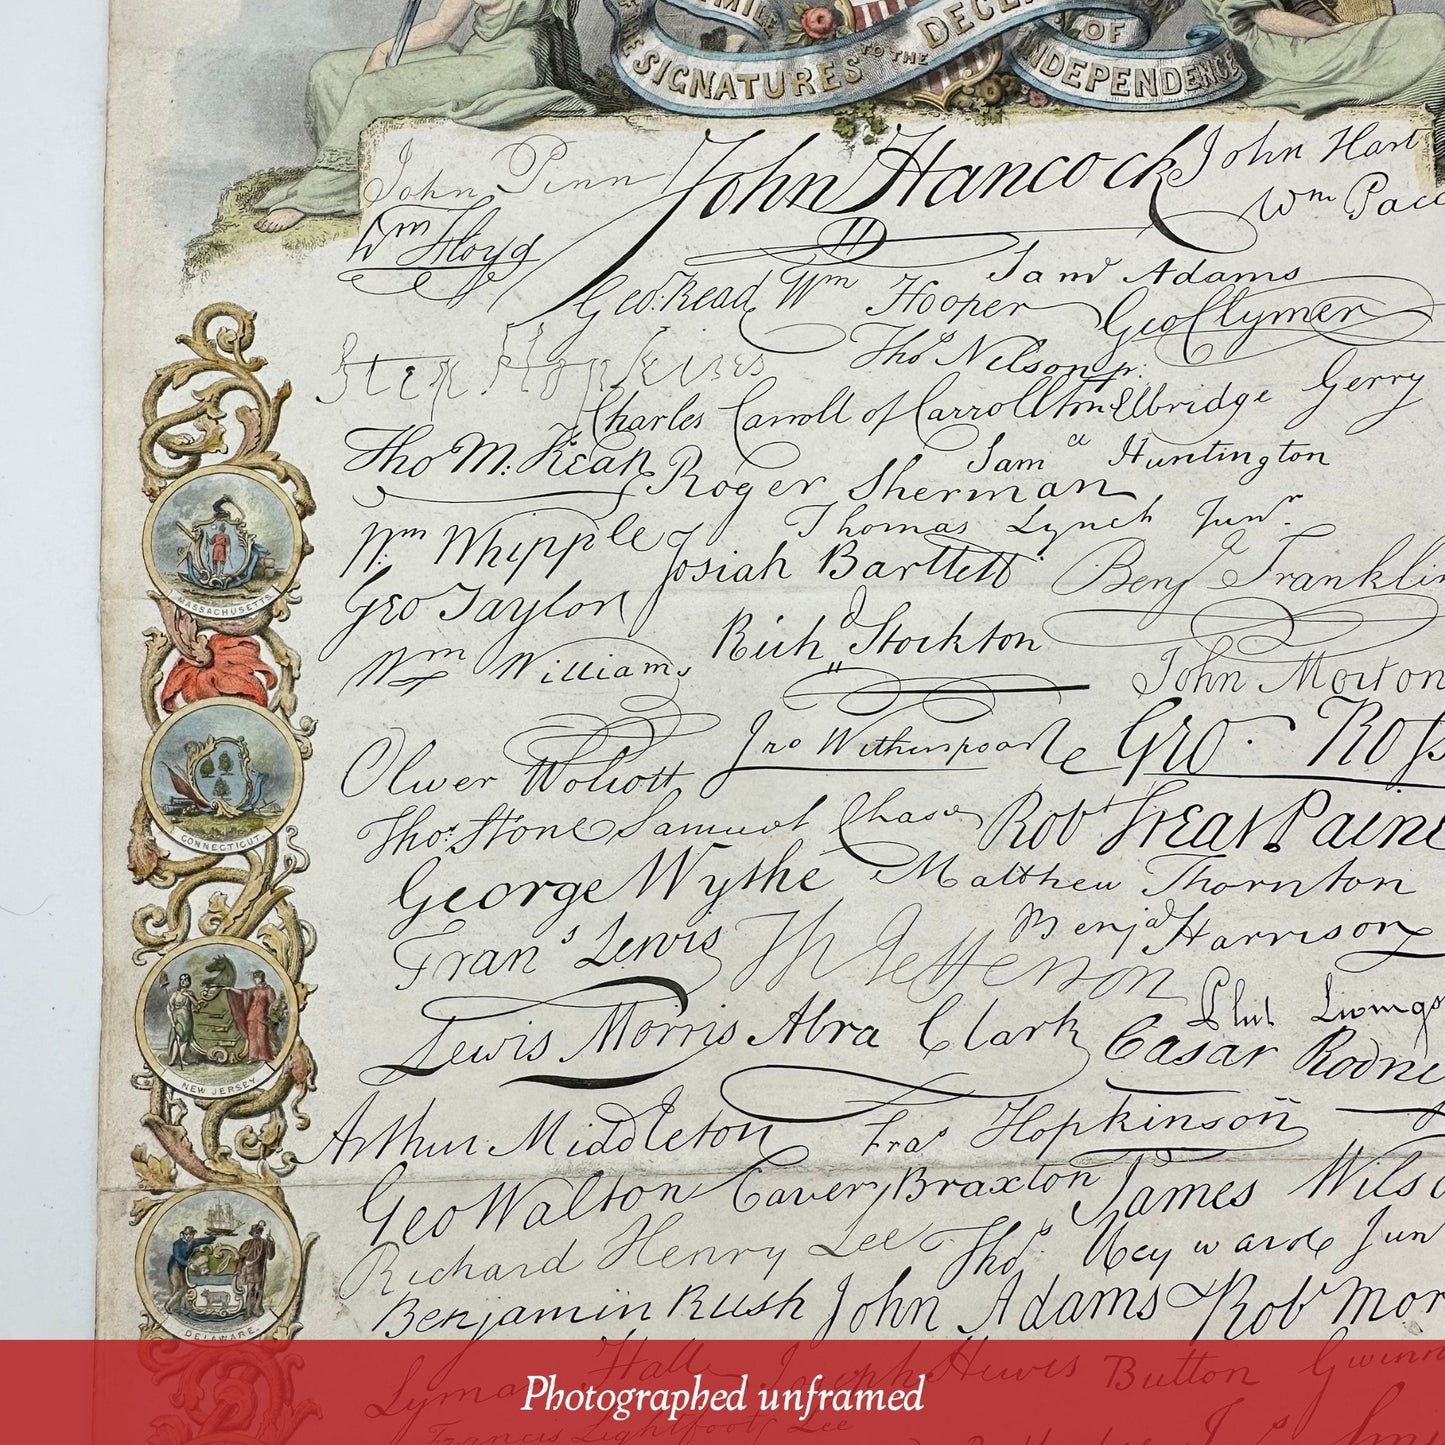 SIGNATURES TO THE DECL
OF
INDEPENDENCE
John Penn John Hancock John Hart
Wm Floyd Wm Pac
Saml Adams
Geo. Read Wm Hooper Geo Clymer
Step. Hopkins Thos Nelson jr.
Charles Carroll of Carrollton Elbridge Gerry
Tho M. Kean Roger Sherman Saml Huntington
Wm Whipple Thomas Lynch Junr.
Josiah Bartlett Benj Franklin
Geo Taylor
Wm Williams Richd Stockton John Morton
Oliver Wolcott Jno Witherspoon Geo. Ross
Thos. Stone Samuel Chase Robt Treat Paine
George Wythe Matthew Thornton
Frans Lewis Th Jefferson Benja Harrison
Lewis Morris Abra Clark Phil Livings
Cæsar Rodne
Arthur Middleton Fras Hopkinson
Geo Walton Carter Braxton James Wilso
Richard Henry Lee Thos. Heyward Jun
Benjamin Rush John Adams Robt Mor
Lyma Hall Joseph Hewes Button Gwinn
Francis Lightfoot Lee
MASSACHUSETTS
CONNECTICUT
NEW JERSEY
DELAWARE
Photographed unframed